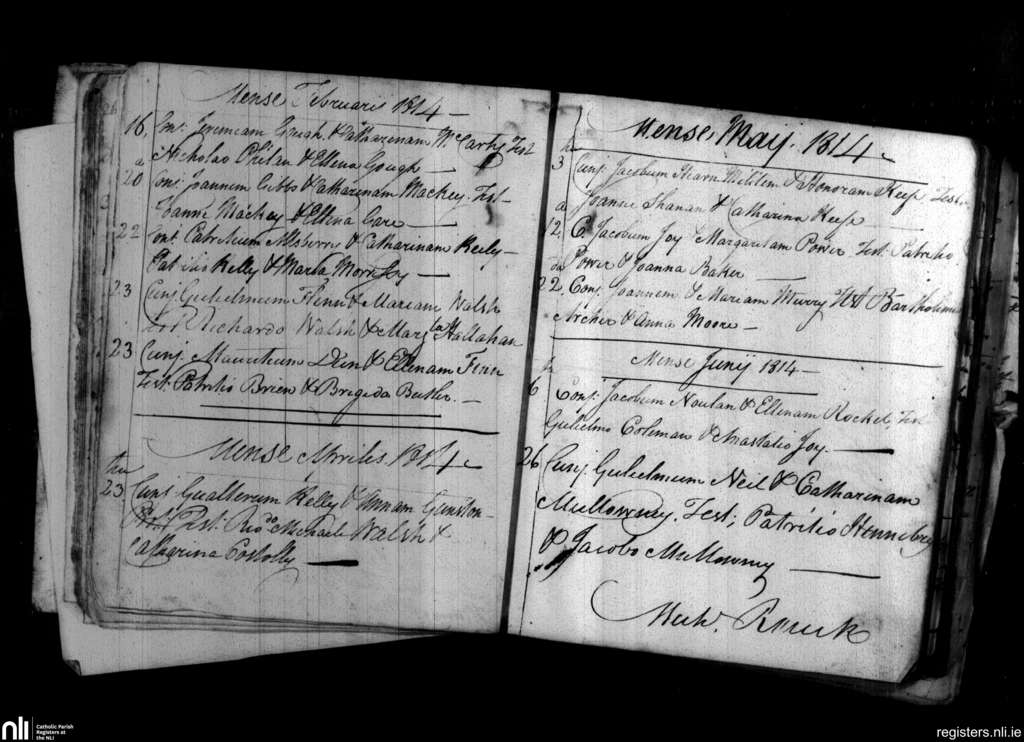 Mense Februarii 1814 —
16. Conj. Jeremiam Gough & Catharinam McCarty Test
Nicholao Philan & Ellena Gough —
a
20 Conj. Joannem Cubbs & Catharinam Mackey. Test
Joanne Mackey & Ellena Gare —
22 Conj. Patritium & Catharinam Reily —
Patritio Kelly & Maria —
23 Conj Gulielmum Flinn & Mariam Walsh
Test Richardo Walsh & Marg Hallahan
23 Conj. Mauritium & Ellenam Finn
Test. Patritio Brien & Brigida Butler. —
Mense Aprilis 1814 —
23 Conj Gualterum Kelly & Annam
Test. Michaele Walsh &
Catharina Costolly —
Mense Maij. 1814 —
3 Conj. Jacobum Hearn Militem & Honoram Keep Test.
Joanne Shanan & Catharina Keep
a
12. C. Jacobum Joy & Margaretam Power Test. Patritio
Power & Joanna Baker —
22. Conj. Joannem & Mariam Murry Test Bartholomeo
Archer & Anna Moore —
Mense Junij 1814 —
6 Conj. Jacobum Noulan & Ellenam Rocket, Test
Gulielmo Coleman & Anastatio Joy. —
26 Conj. Gulielmum Neil & Catharinam
Mullowney. Test; Patritio Hennebry
& Jacobo Mullowney —
nli
Catholic Parish
Registers at
the NLI
registers.nli.ie